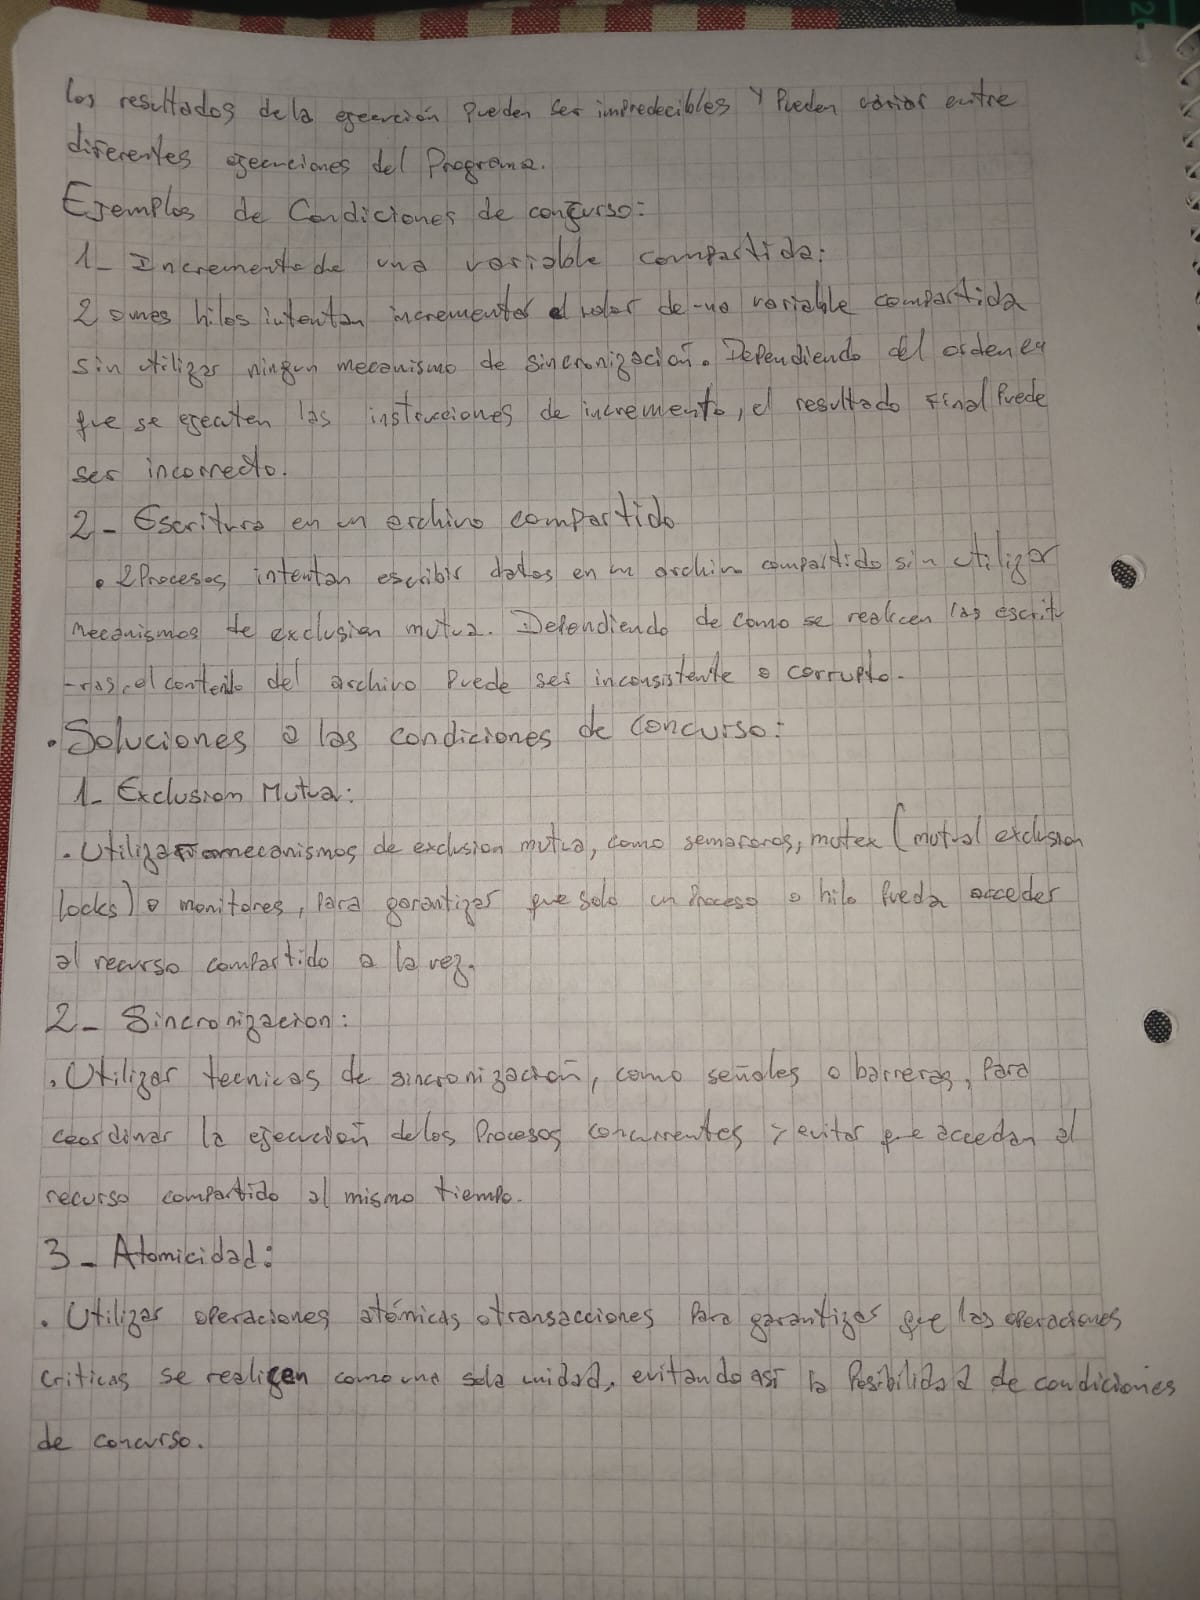 los resultados de la ejecución pueden ser impredecibles y pueden variar entre
diferentes ejecuciones del Programa.
Ejemplos de Condiciones de concurso:
1- Incremento de una variable compartida:
2 o mas hilos intentan incrementar el valor de una variable compartida
sin utilizar ningun mecanismo de sincronización. Dependiendo del orden en
que se ejecuten las instrucciones de incremento, el resultado Final Puede
ser incorrecto.
2- Escritura en un archivo compartido
• 2 Procesos intentan escribir datos en un archivo compartido sin utilizar
mecanismos de exclusion mutua. Dependiendo de como se realicen las escritu
-ras, el contenido del archivo Puede ser inconsistente o corrupto.
• Soluciones a las condiciones de concurso:
1- Exclusion Mutua:
• Utilizar mecanismos de exclusion mutua, como semaforos, mutex (mutual exclusion
locks) o monitores, Para garantizar que solo un Proceso o hilo Pueda acceder
al recurso compartido a la vez.
2- Sincronizacion:
• Utilizar tecnicas de sincronización, como señales o barreras, Para
coordinar la ejecución de los Procesos concurrentes y evitar que accedan al
recurso compartido al mismo tiempo.
3- Atomicidad:
• Utilizar operaciones atómicas o transacciones Para garantizar que las operaciones
criticas se realicen como una sola unidad, evitando así la Posibilidad de condiciones
de concurso.